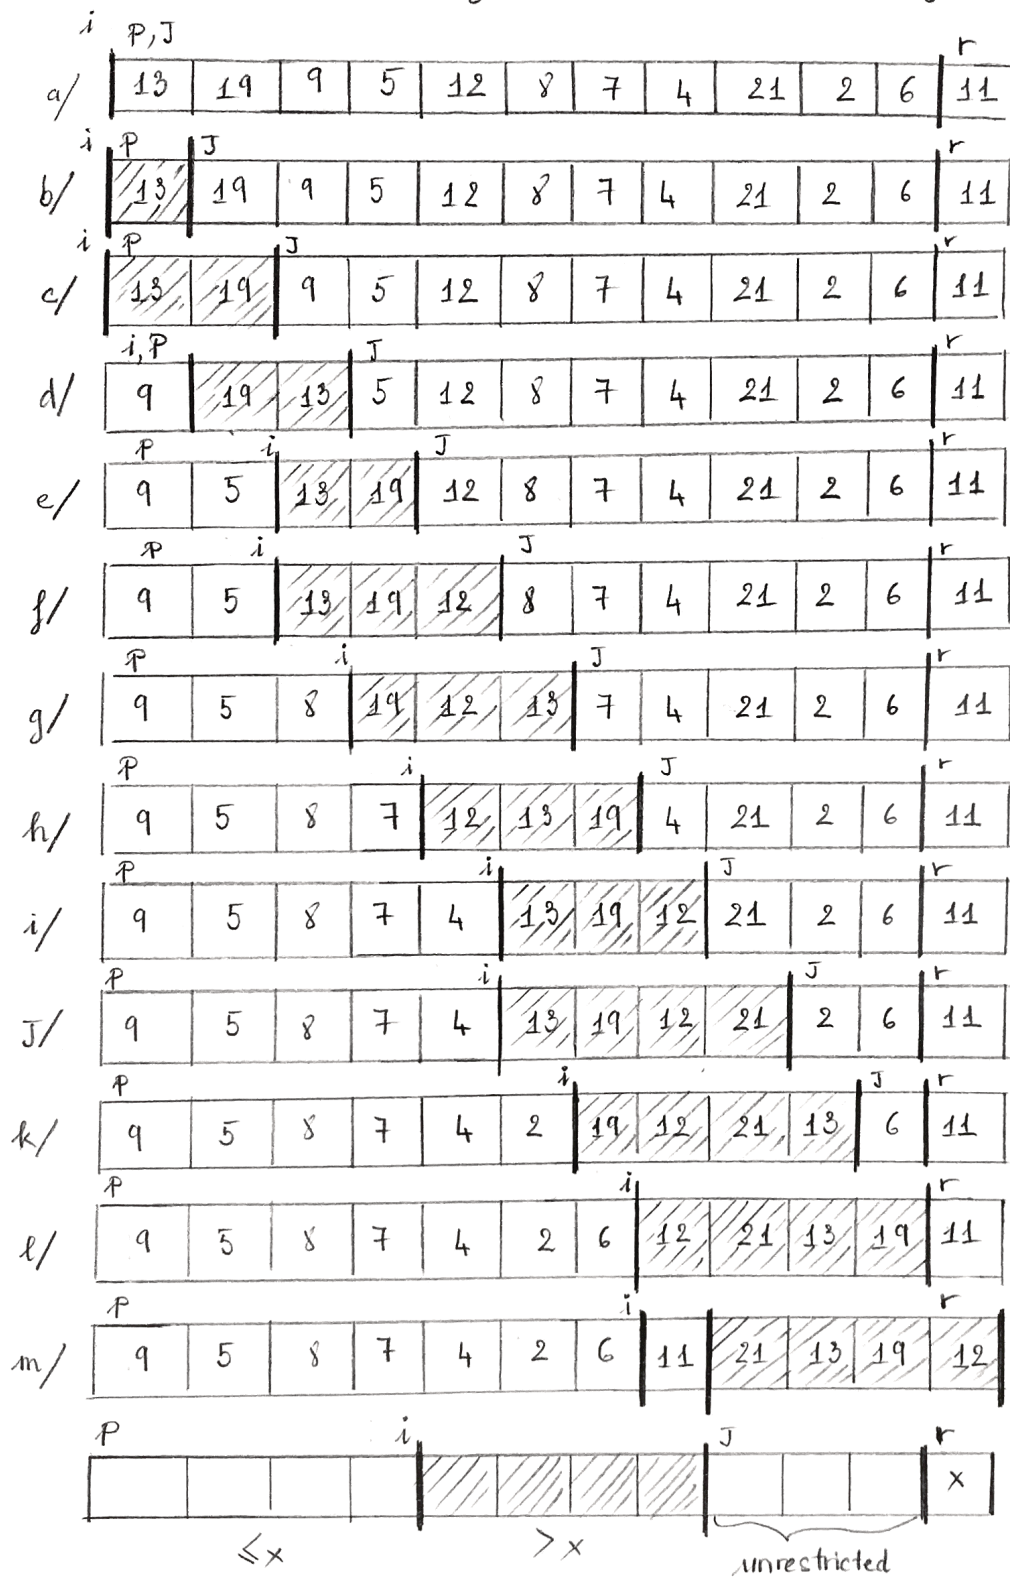 i P, J r
a/ 13 19 9 5 12 8 7 4 21 2 6 11
i P J r
b/ 13 19 9 5 12 8 7 4 21 2 6 11
i P J r
c/ 13 19 9 5 12 8 7 4 21 2 6 11
i, P J r
d/ 9 19 13 5 12 8 7 4 21 2 6 11
P i J r
e/ 9 5 13 19 12 8 7 4 21 2 6 11
P i J r
f/ 9 5 13 19 12 8 7 4 21 2 6 11
P i J r
g/ 9 5 8 19 12 13 7 4 21 2 6 11
P i J r
h/ 9 5 8 7 12 13 19 4 21 2 6 11
P i J r
i/ 9 5 8 7 4 13 19 12 21 2 6 11
P i J r
J/ 9 5 8 7 4 13 19 12 21 2 6 11
P i J r
k/ 9 5 8 7 4 2 19 12 21 13 6 11
P i r
l/ 9 5 8 7 4 2 6 12 21 13 19 11
P i r
m/ 9 5 8 7 4 2 6 11 21 13 19 12
P i J r
x
≤x >x unrestricted